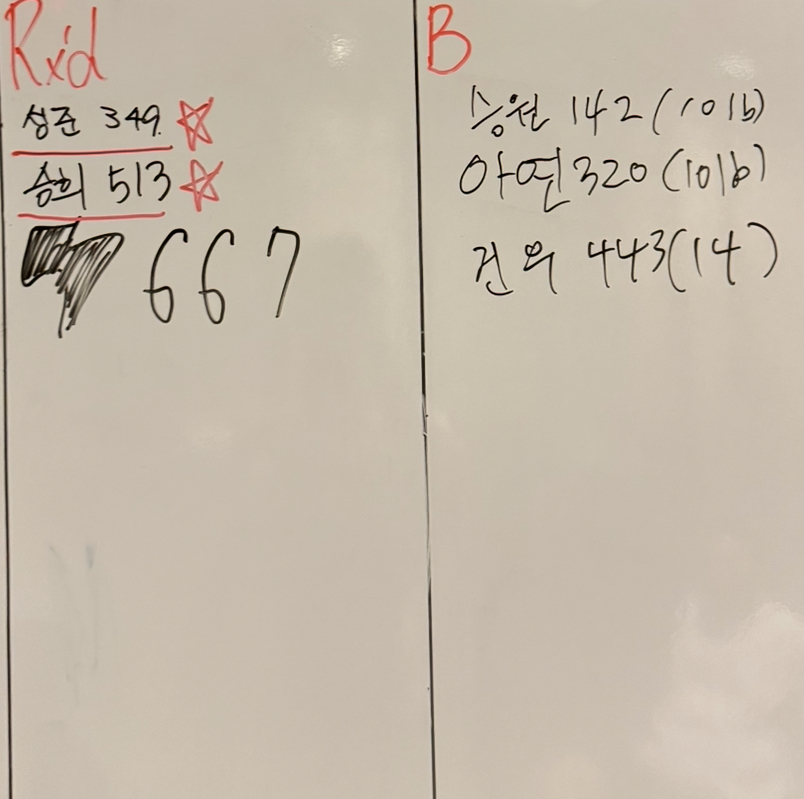 Rx'd
성준 349
승희 513
667
B
승원 142 (10lb)
아연 320 (10lb)
건우 443 (14)